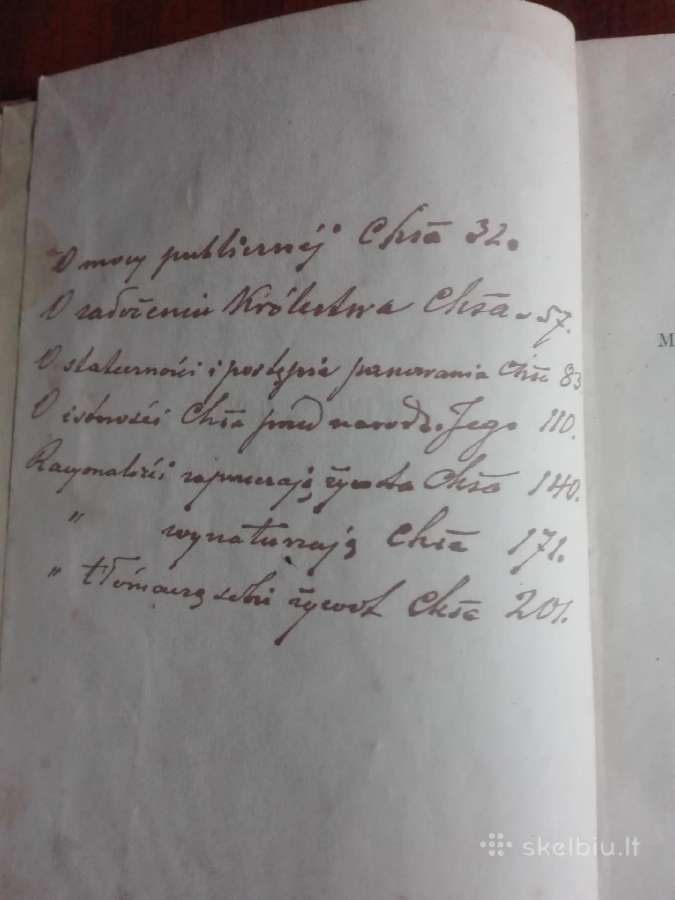 O mocy publicznéj Chsa 32.
O założeniu Królestwa Chsa - 57.
O stateczności i postępie panowania Chsa 83
O istności Chsa przed narodz. Jego 110.
Racyonaliści zaprzeczają żywota Chsa 140.
" wynaturzają Chsa 171.
" tłómaczą sobie żywot Chsa 201.
M
skelbiu.lt